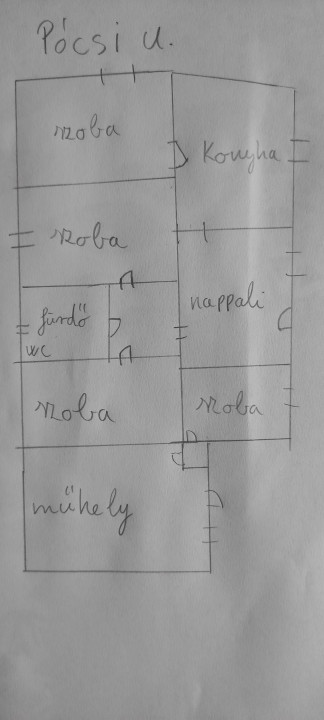 Pócsi u.
szoba
Konyha
szoba
nappali
fürdő
WC
szoba
szoba
műhely